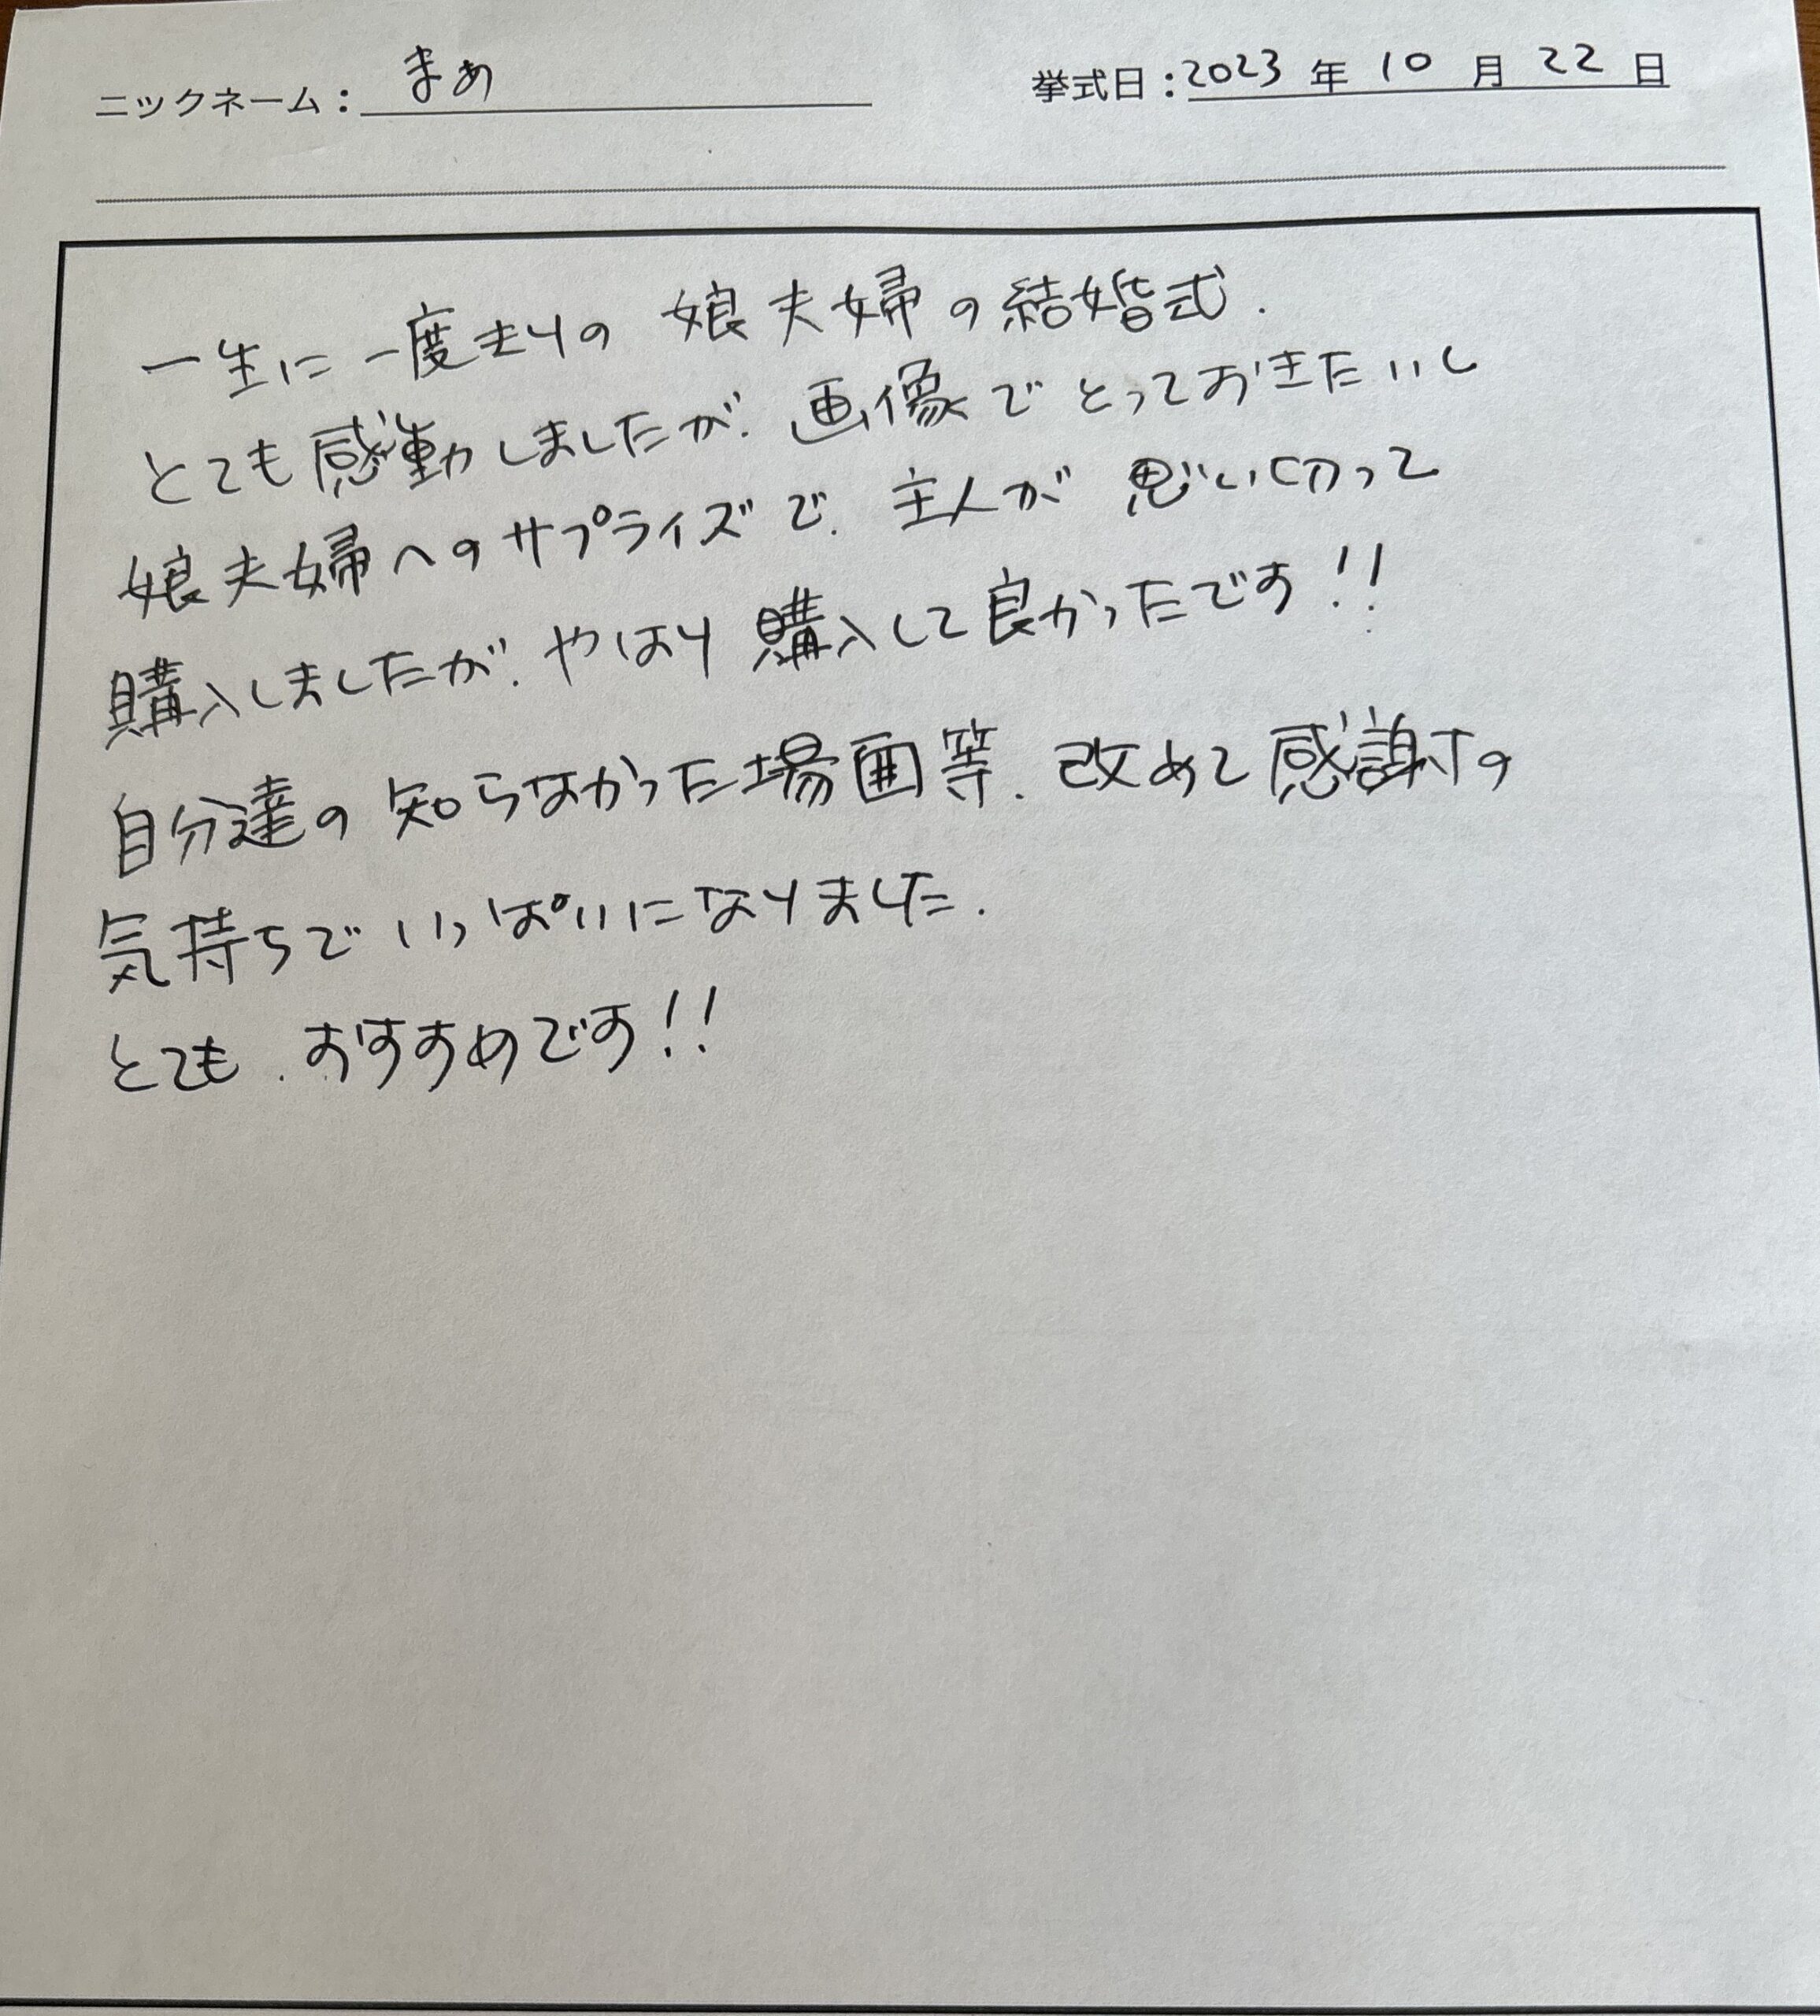 ニックネーム：まぁ
挙式日：2023年10月22日
一生に一度きりの 娘夫婦の結婚式.
とても感動しましたが. 画像でとっておきたいし
娘夫婦へのサプライズで. 主人が 思い切って
購入しましたが. やはり購入して良かったです!!
自分達の知らなかった場画等. 改めて感謝の
気持ちでいっぱいになりました.
とても. おすすめです!!